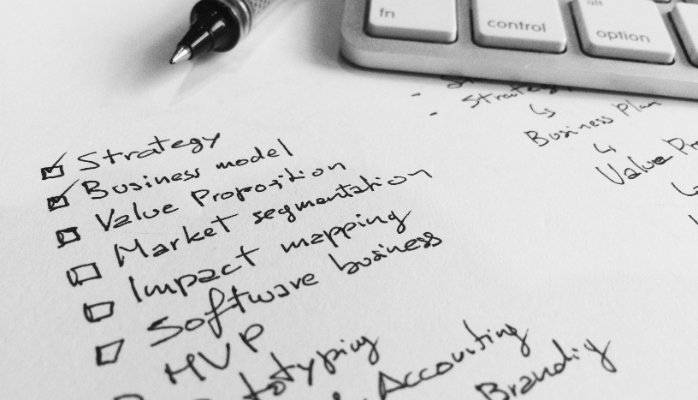 fn
control
alt
option
Strategy
Business model
Value Proposition
Market segmentation
Impact mapping
Software business
MVP
Accounting
Branding
Strategy
Business Plan
Value